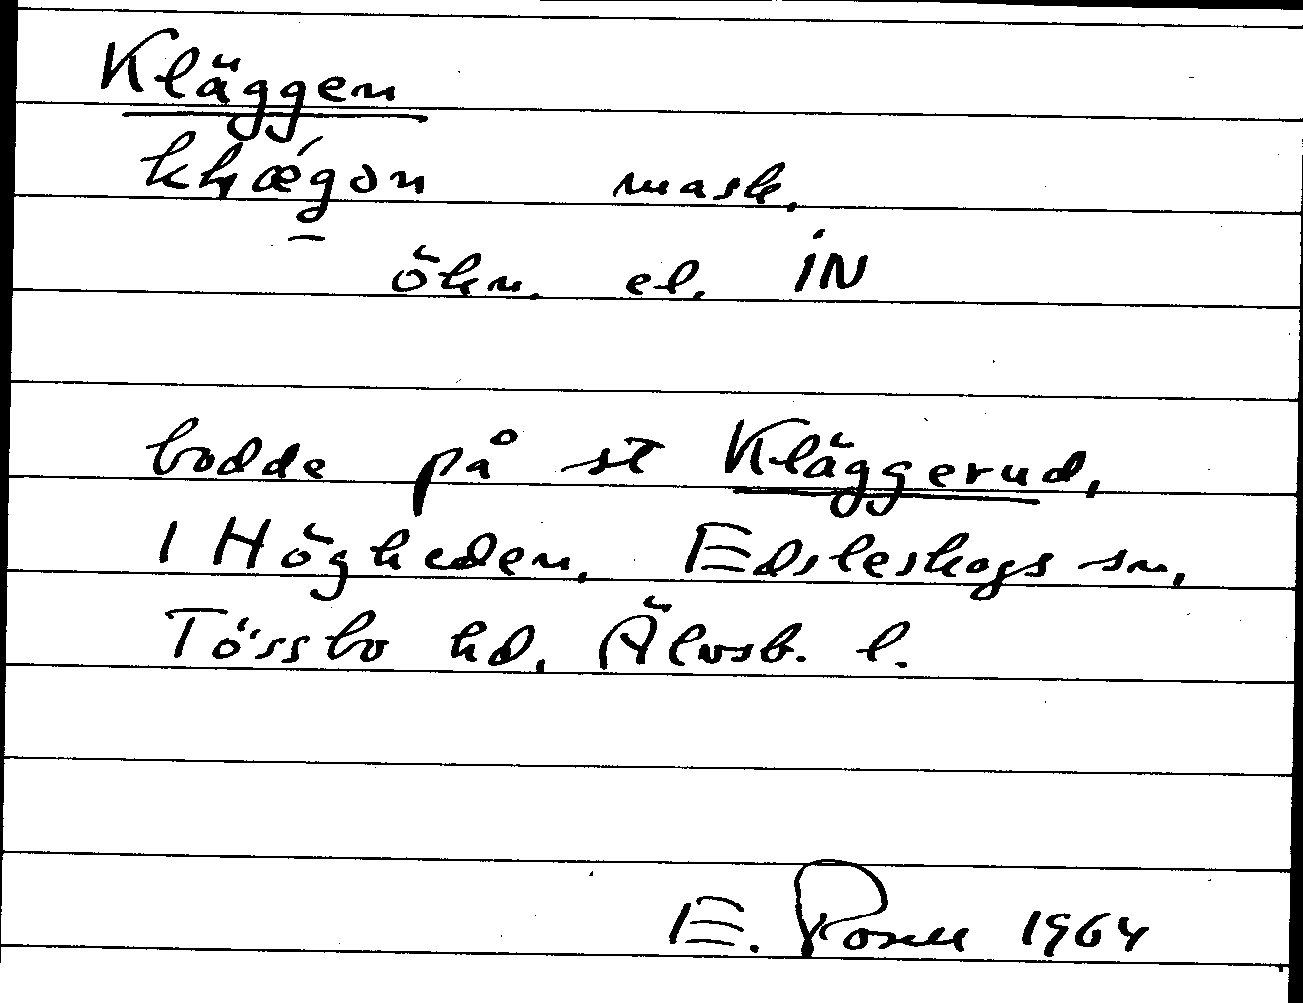 Kläggen
mask.
ökn. el. IN
bodde på st Kläggerud,
i Högheden, Edsleskogs sn,
Tössbo hd, Älvsb. l.
E. Rosell 1964